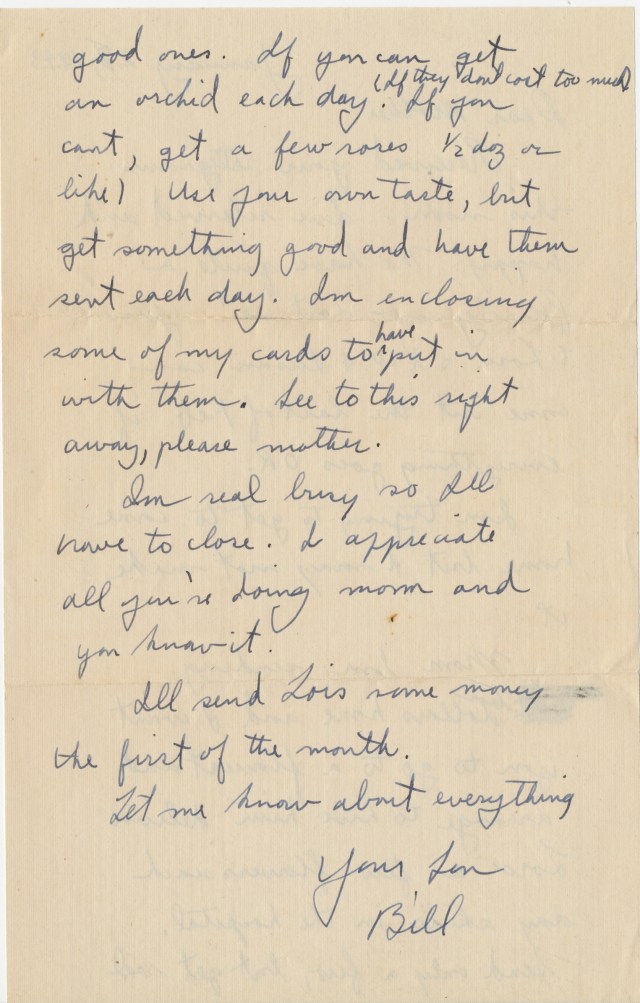 good ones. If you can get
an orchid each day. (If they dont cost too much) If you
cant, get a few roses 1/2 doz or
like) Use your own taste, but
get something good and have them
sent each day. Im enclosing
some of my cards to have put in
with them. See to this right
away, please mother.
Im real busy so Ill
have to close. I appreciate
all you're doing mom and
you know it.
Ill send Lois some money
the first of the month.
Let me know about everything
Your Son
Bill